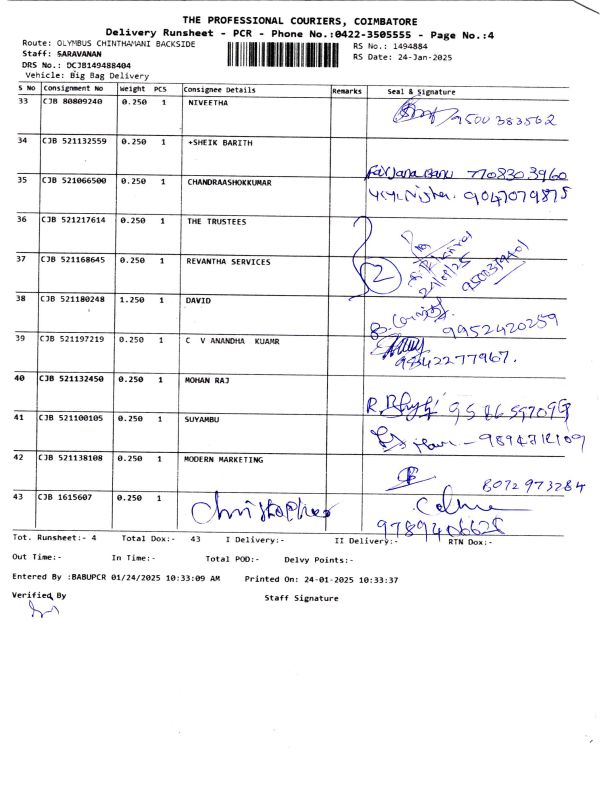 THE PROFESSIONAL COURIERS, COIMBATORE
Delivery Runsheet - PCR - Phone No.:0422-3505555 - Page No.:4
Route: OLYMBUS CHINTHAMANI BACKSIDE RS No.: 1494884
Staff: SARAVANAN RS Date: 24-Jan-2025
DRS No.: DCJB149488404
Vehicle: Big Bag Delivery
S No Consignment No Weight PCS Consignee Details Remarks Seal & Signature
33 CJB 80809240 0.250 1 NIVEETHA
9500383562
34 CJB 521132559 0.250 1 +SHEIK BARITH
Farjana Banu 7708303960
35 CJB 521066500 0.250 1 CHANDRAASHOKKUMAR
9047079875
36 CJB 521217614 0.250 1 THE TRUSTEES
37 CJB 521168645 0.250 1 REVANTHA SERVICES
2
38 CJB 521180248 1.250 1 DAVID
9952420259
39 CJB 521197219 0.250 1 C V ANANDHA KUAMR
40 CJB 521132450 0.250 1 MOHAN RAJ
41 CJB 521100105 0.250 1 SUYAMBU
42 CJB 521138108 0.250 1 MODERN MARKETING
8072973284
43 CJB 1615607 0.250 1 Christopher
Tot. Runsheet:- 4 Total Dox:- 43 I Delivery:- II Delivery:- RTN Dox:-
Out Time:- In Time:- Total POD:- Delvy Points:-
Entered By :BABUPCR 01/24/2025 10:33:09 AM Printed On: 24-01-2025 10:33:37
Verified By Staff Signature